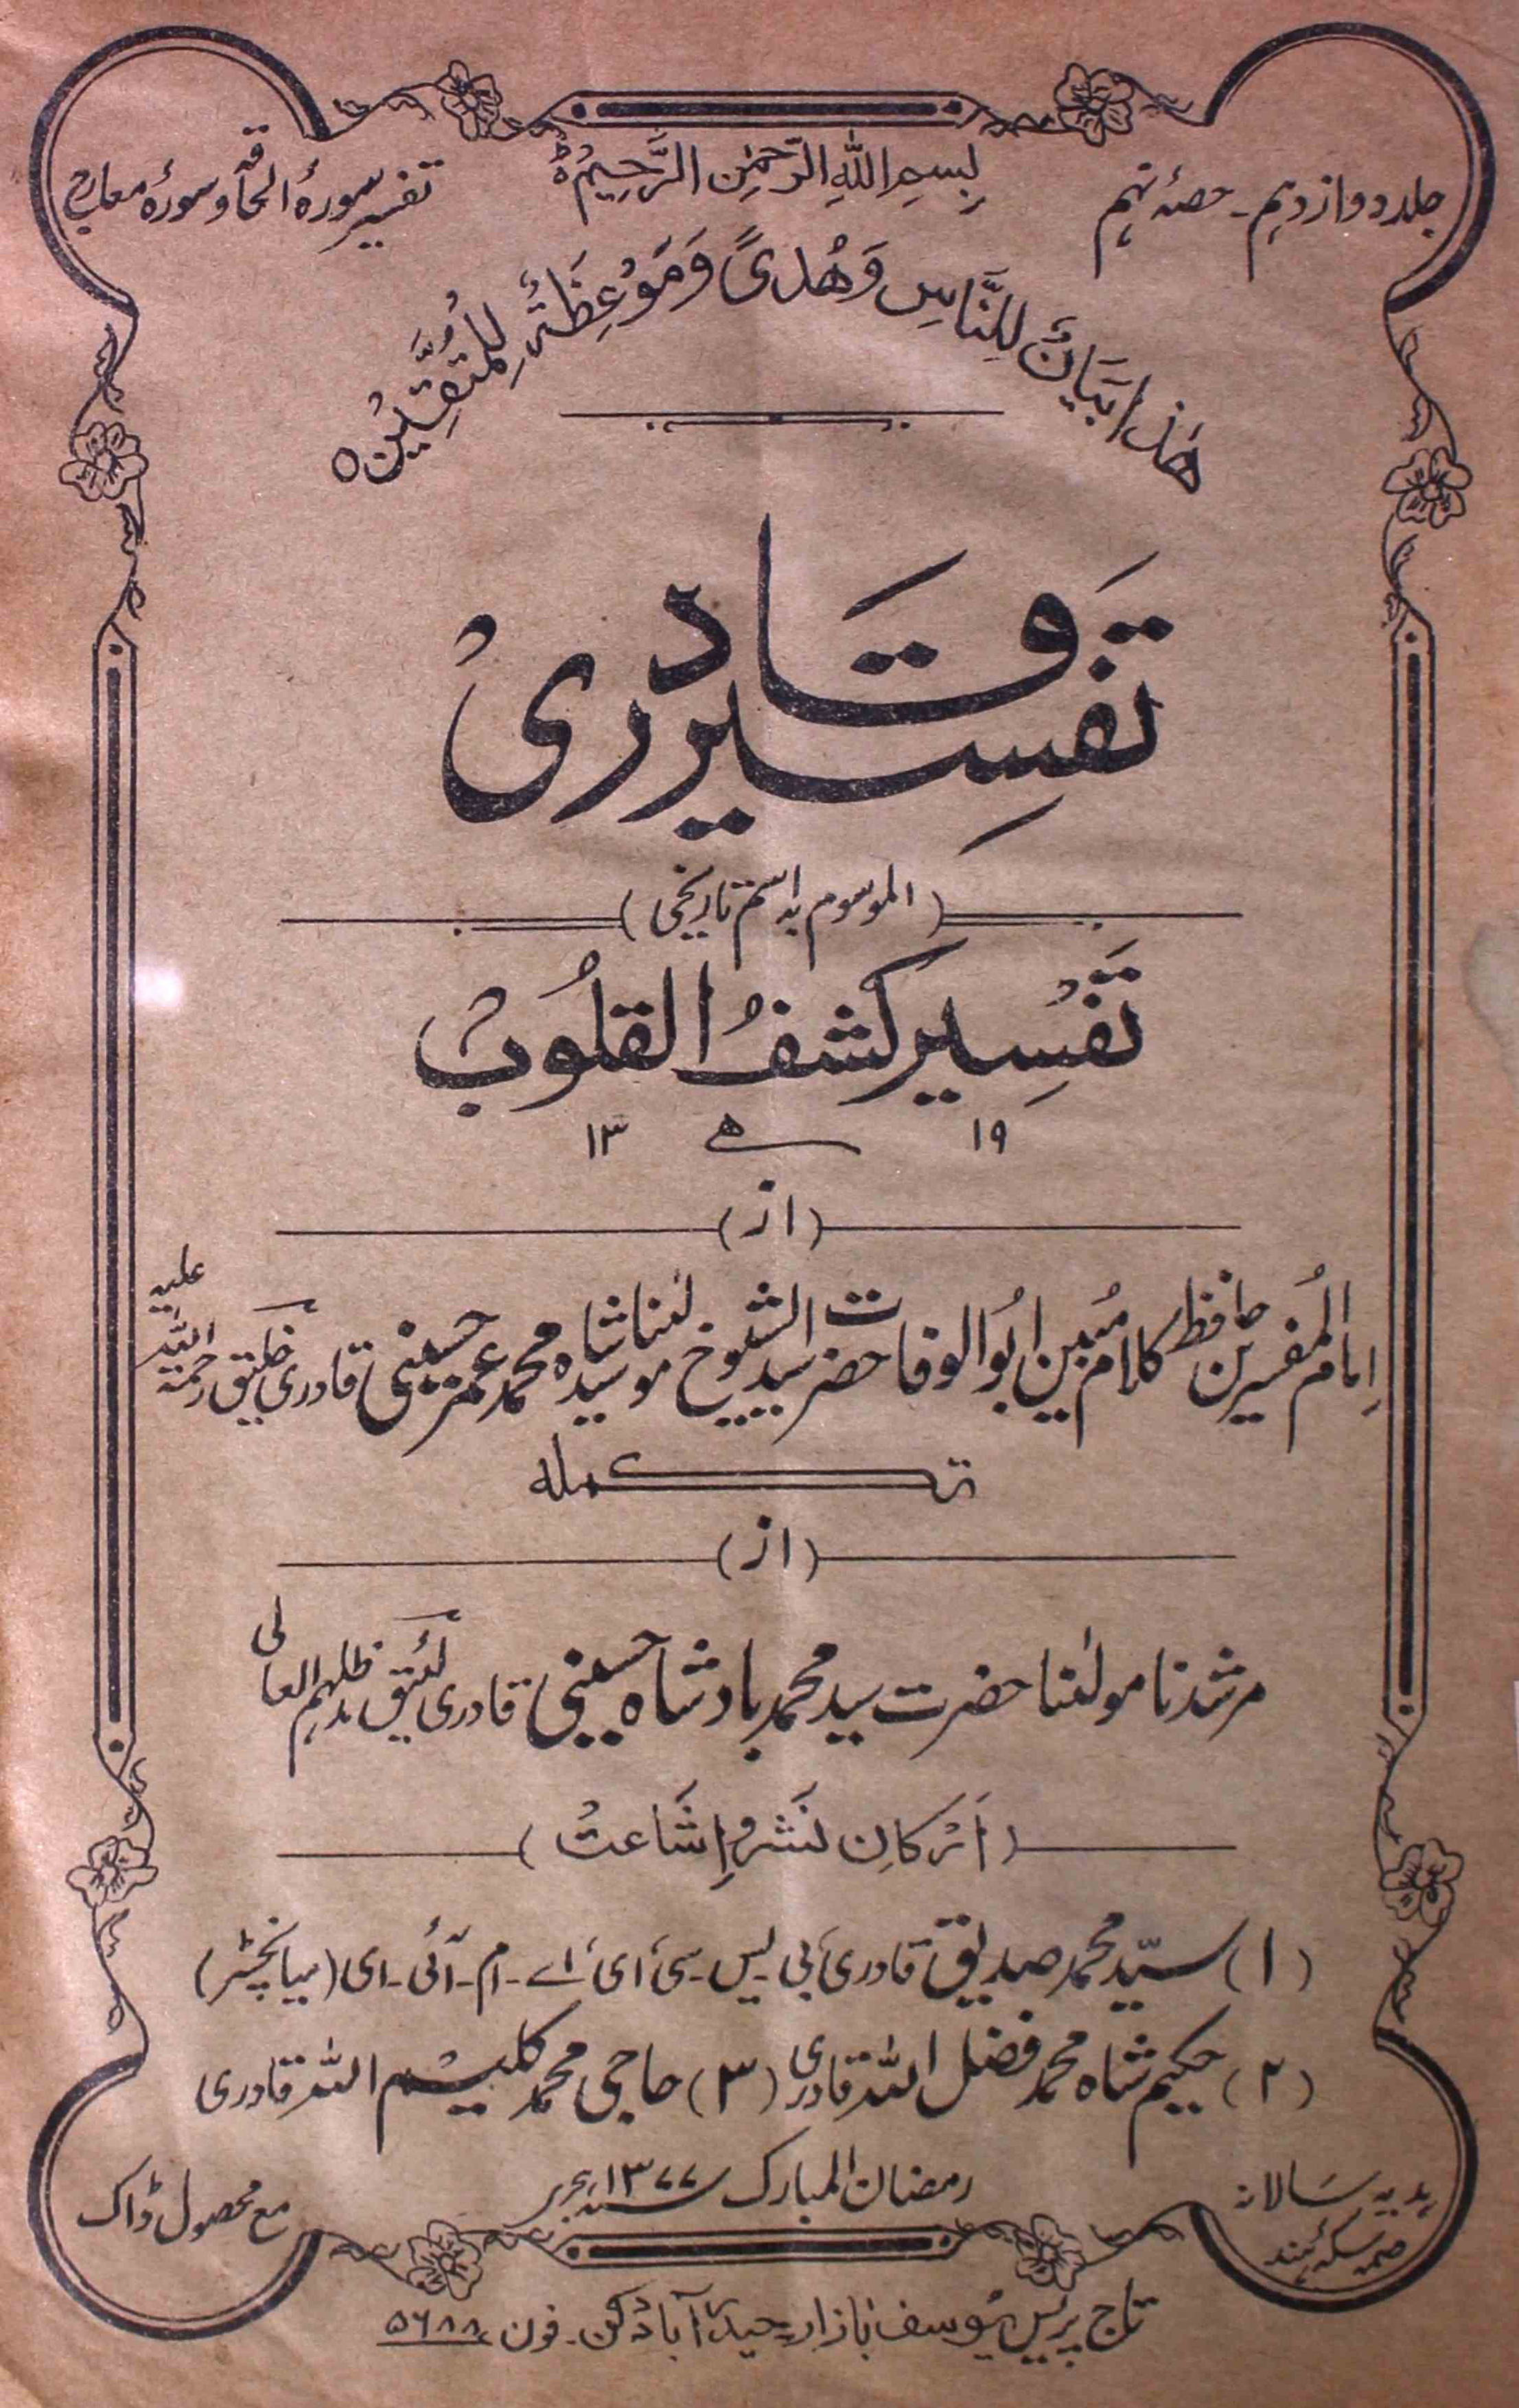 جلد دوازدہم۔ حصۂ نہم
بِسمِ اللهِ الرَّحمٰنِ الرَّحِيمِ ط
تفسیر سورۂ الحاقہ و سورۂ معارج
هٰذَا بَيَانٌ لِلنَّاسِ وَهُدىً وَمَوْعِظَةٌ لِلْمُتَّقِيْنَ ○
تَفسِیر قَادری
(الموسوم بہ اسم تاریخی)
تَفْسِیر کشفُ القلُوبْ
۱۹ ھ ۱۳
(از)
اِمامُ المفسرین حافظ کلام مُبین ابُو الوفا حضرت سید الشیوخ مولٰنا سید شاہ محمد عمر حسینی قادری خلیق رحمۃ اللہ علیہ
تکملہ
(از)
مرشدنا مولٰنا حضرت سید محمد بادشاہ حسینی قادری لئیق مدظلہم العالی
(اَرْکانِ نَشر و اِشَاعتْ)
(۱) سیّد محمد صدیق قادری بی۔یس۔سی ای اے۔ام۔آئی۔ای (میانچسٹر)
(۲) حکیم شاہ محمد فضل اللہ قادری (۳) حاجی محمد کلیم اللہ قادری
ہدیہ سَالانہ
سکہ ہند
رمضان المبارک ۱۳۷۷ سنہ ہجری
مع محصول ڈاک
تاج پریس یوسف بازار۔ حیدرآباد دکن۔ فون ۵۶۸۸